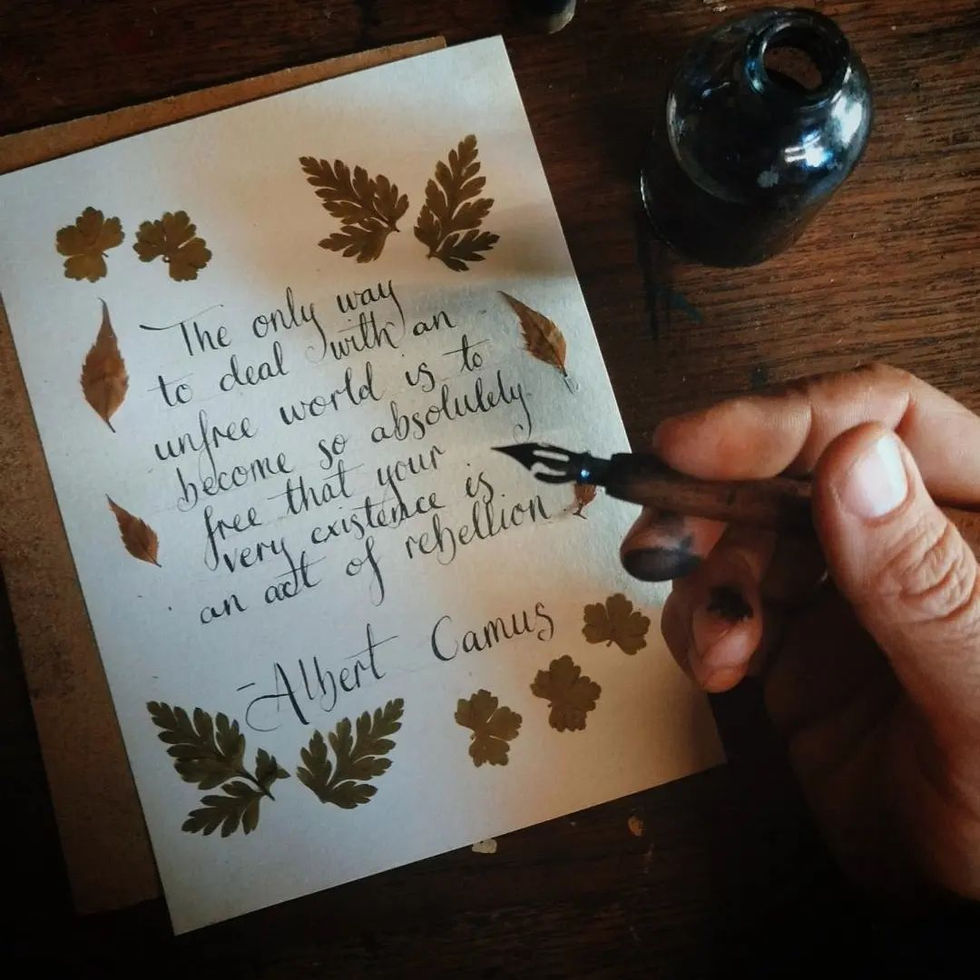 The only way
to deal with an
unfree world is to
become so absolutely
free that your
very existence is
an act of rebellion
-Albert Camus